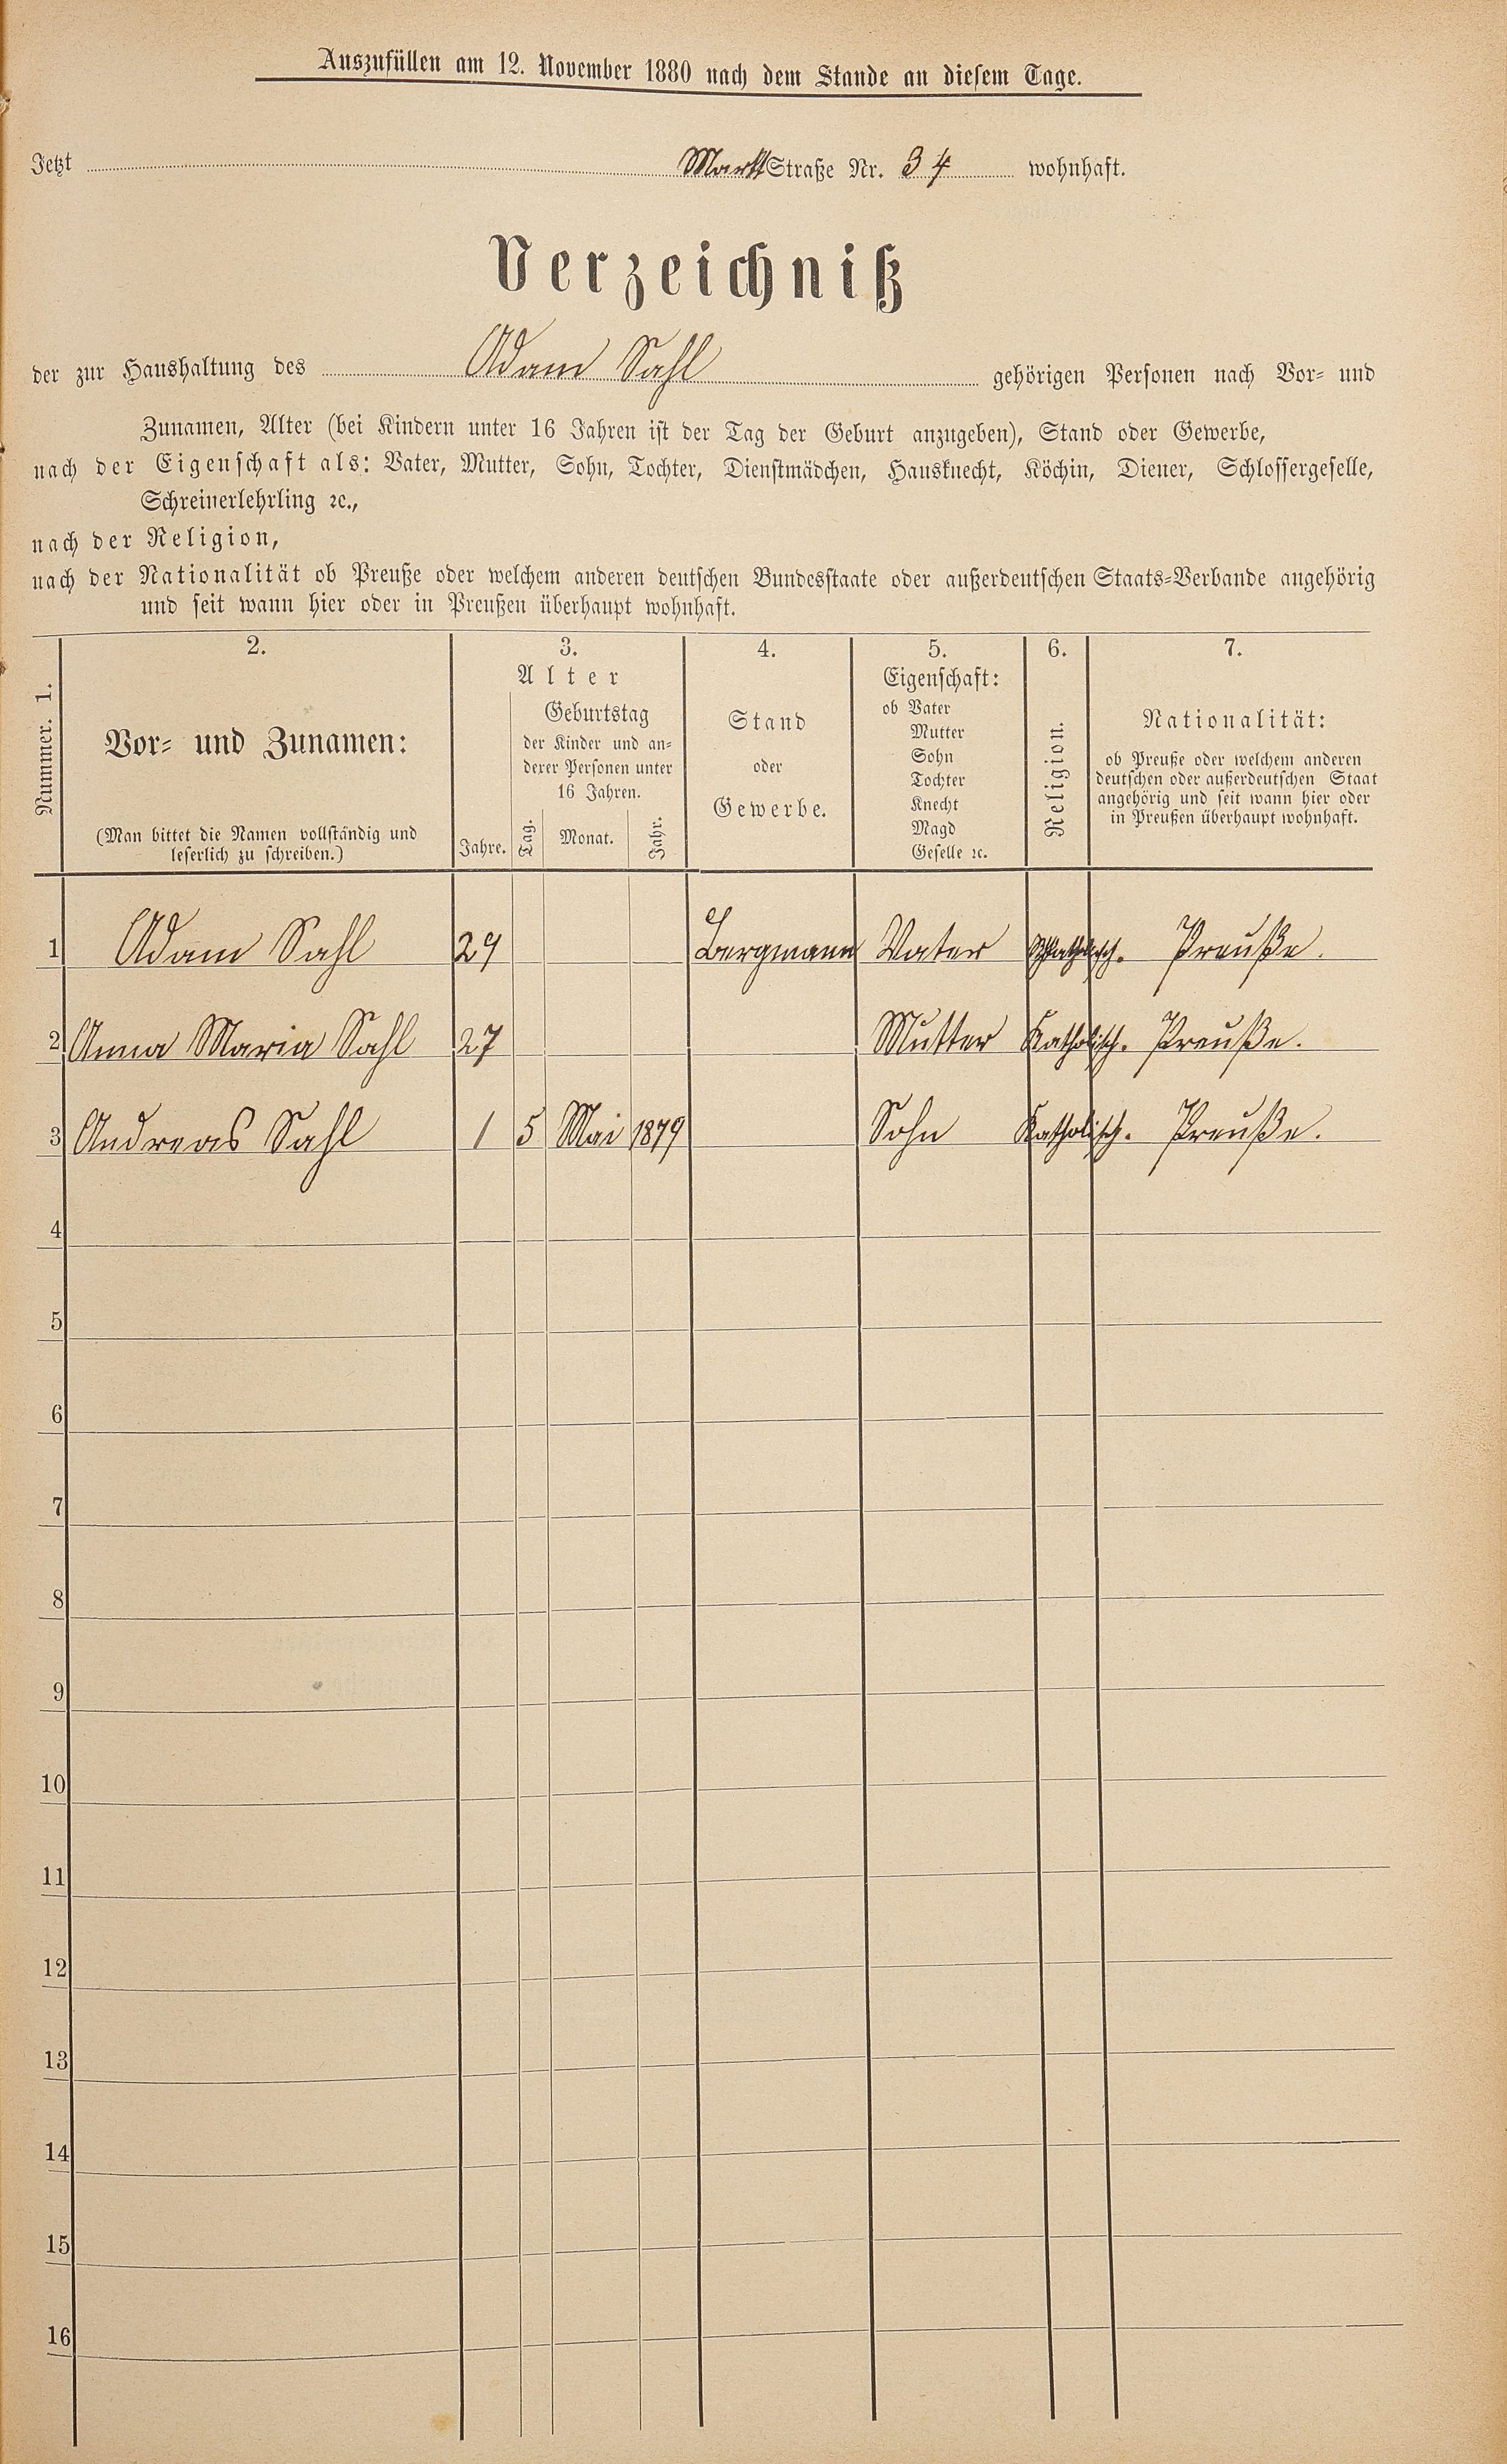 Auszufüllen am 12. November 1880 nach dem Stande an diesem Tage.
Jetzt Markt Straße Nr. 34 wohnhaft.
Verzeichniß
der zur Haushaltung des Adam Sahl gehörigen Personen nach Vor- und
Zunamen, Alter (bei Kindern unter 16 Jahren ist der Tag der Geburt anzugeben), Stand oder Gewerbe,
nach der Eigenschaft als: Vater, Mutter, Sohn, Tochter, Dienstmädchen, Hausknecht, Köchin, Diener, Schlossergeselle,
Schreinerlehrling ꝛc.,
nach der Religion,
nach der Nationalität ob Preuße oder welchem anderen deutschen Bundesstaate oder außerdeutschen Staats-Verbande angehörig
und seit wann hier oder in Preußen überhaupt wohnhaft.
Nummer. 1.
2.
Vor- und Zunamen:
(Man bittet die Namen vollständig und
leserlich zu schreiben.)
3.
Alter
Geburtstag
der Kinder und an-
derer Personen unter
16 Jahren.
Jahre. Tag. Monat. Jahr.
4.
Stand
oder
Gewerbe.
5.
Eigenschaft:
ob Vater
Mutter
Sohn
Tochter
Knecht
Magd
Geselle ꝛc.
6.
Religion.
7.
Nationalität:
ob Preuße oder welchem anderen
deutschen oder außerdeutschen Staat
angehörig und seit wann hier oder
in Preußen überhaupt wohnhaft.
1 Adam Sahl 29 Bergmann Vater Katholisch. Preuße.
2 Anna Maria Sahl 27 Mutter Katholisch. Preuße.
3 Andreas Sahl 1 5 Mai 1879 Sohn Katholisch. Preuße.
4
5
6
7
8
9
10
11
12
13
14
15
16